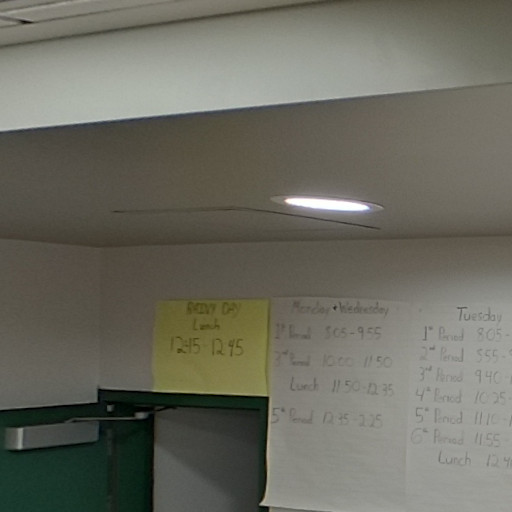 RAINY DAY
Lunch
12:15 12:45
Monday + Wednesday
1st Period 8:05-9:55
3rd Period 10:00 11:50
Lunch 11:50-12:35
5th Period 12:35-2:25
Tuesday
1st Period 8:05-
2nd Period 8:55-
3rd Period 9:40-
4th Period 10:25-
5th Period 11:10-
6th Period 11:55-
Lunch 12:4